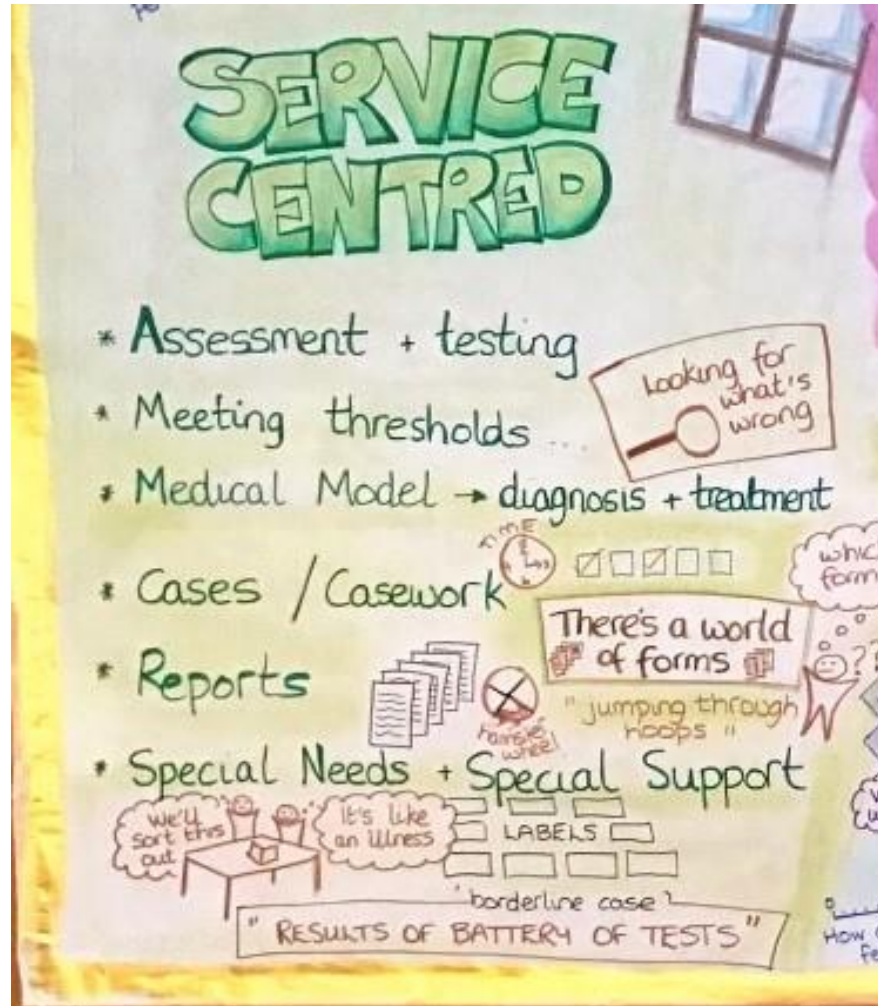 SERVICE
CENTRED
* Assessment + testing
Looking for
what's
wrong
* Meeting thresholds ...
* Medical Model → diagnosis + treatment
TIME
* Cases / Casework
There's a world
of forms
"jumping through
hoops"
??
* Reports
hamster
wheel
* Special Needs + Special Support
We'll
sort this
out
It's like
an illness
LABELS
'borderline case'
"RESULTS OF BATTERY OF TESTS"
How